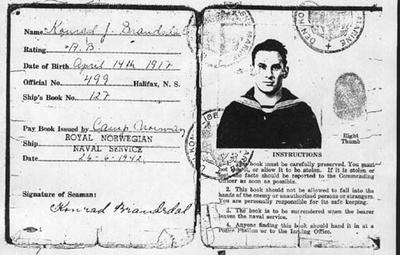 Name Konrad J. Brandsdal
Rating A.B.
Date of Birth April 14th 1917
Official No. 499 Halifax, N. S.
Ship's Book No. 127
Pay Book Issued by Camp Norway
ROYAL NORWEGIAN
Ship
NAVAL SERVICE
Date 26-6-1942
Signature of Seaman:
Konrad Brandsdal
DEN NO MARINE
Right
Thumb
INSTRUCTIONS
book must be carefully preserved. You must
or allow it to be stolen. If it is stolen or
the facts should be reported to the Commanding
officer as soon as possible.
2. This book should not be allowed to fall into the
hands of the enemy or unauthorised persons or strangers.
You are personally responsible for its safe keeping.
3. The book is to be surrendered when the bearer
leaves the naval service.
4. Anyone finding this book should hand it in at a
Police Station or to the Issuing Office.